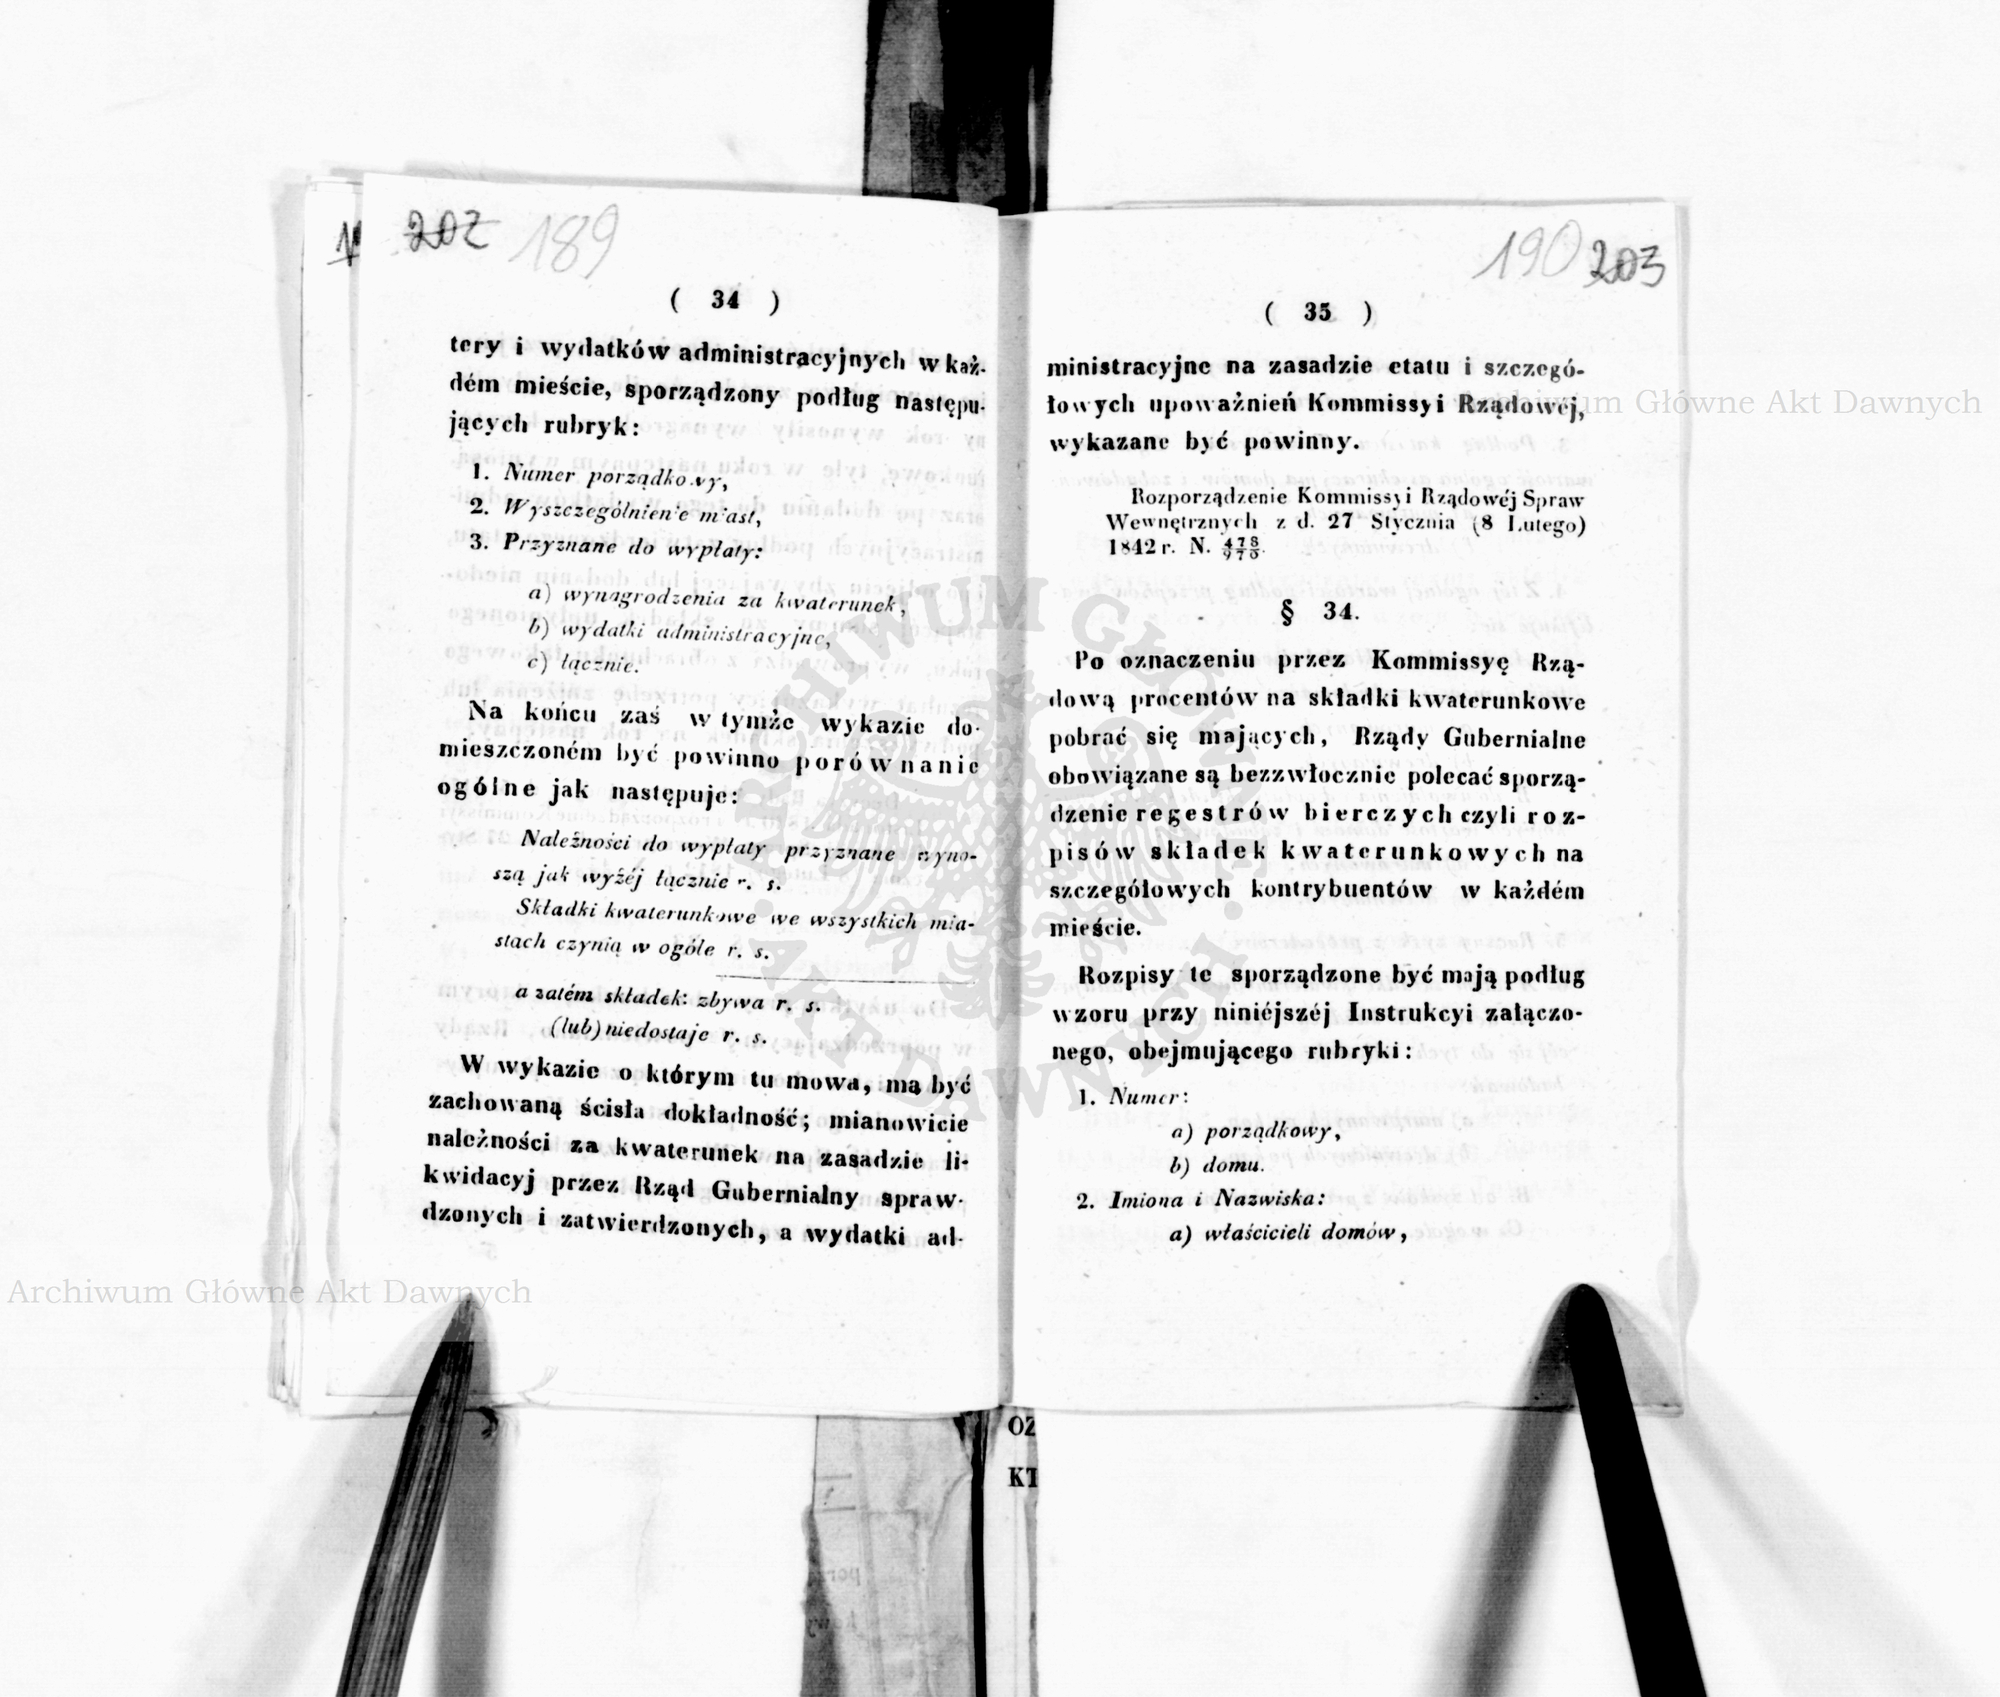 202 189
( 34 )
tery i wydatków administracyjnych w każ-
dém mieście, sporządzony podług następu-
jących rubryk:
1. Numer porządkowy,
2. Wyszczególnienie miast,
3. Przyznane do wypłaty:
a) wynagrodzenia za kwaterunek,
b) wydatki administracyjne,
c) łącznie.
Na końcu zaś w tymże wykazie do-
mieszczoném być powinno porównanie
ogólne jak następuje:
Należności do wypłaty przyznane wyno-
szą jak wyżéj łącznie r. s.
Składki kwaterunkowe we wszystkich mia-
stach czynią w ogóle r. s.
a zatém składek: zbywa r. s.
(lub) niedostaje r. s.
W wykazie o którym tu mowa, ma być
zachowaną ścisła dokładność; mianowicie
należności za kwaterunek na zasadzie li-
kwidacyj przez Rząd Gubernialny spraw-
dzonych i zatwierdzonych, a wydatki ad-
190 203
( 35 )
ministracyjne na zasadzie etatu i szczegó-
łowych upoważnień Kommissyi Rządowéj,
wykazane być powinny.
Rozporządzenie Kommissyi Rządowéj Spraw
Wewnętrznych z d. 27 Stycznia (8 Lutego)
1842 r. N. 478/970.
§ 34.
Po oznaczeniu przez Kommissyę Rzą-
dową procentów na składki kwaterunkowe
pobrać się mających, Rządy Gubernialne
obowiązane są bezzwłocznie polecać sporzą-
dzenie regestrów bierczych czyli roz-
pisów składek kwaterunkowych na
szczegółowych kontrybuentów w każdém
mieście.
Rozpisy te sporządzone być mają podług
wzoru przy niniéjszéj Instrukcyi załączo-
nego, obejmującego rubryki:
1. Numer:
a) porządkowy,
b) domu.
2. Imiona i Nazwiska:
a) właścicieli domów,
Archiwum Główne Akt Dawnych
Archiwum Główne Akt Dawnych
ARCHIWUM GŁÓWNE
AKT DAWNYCH
OZ
KT